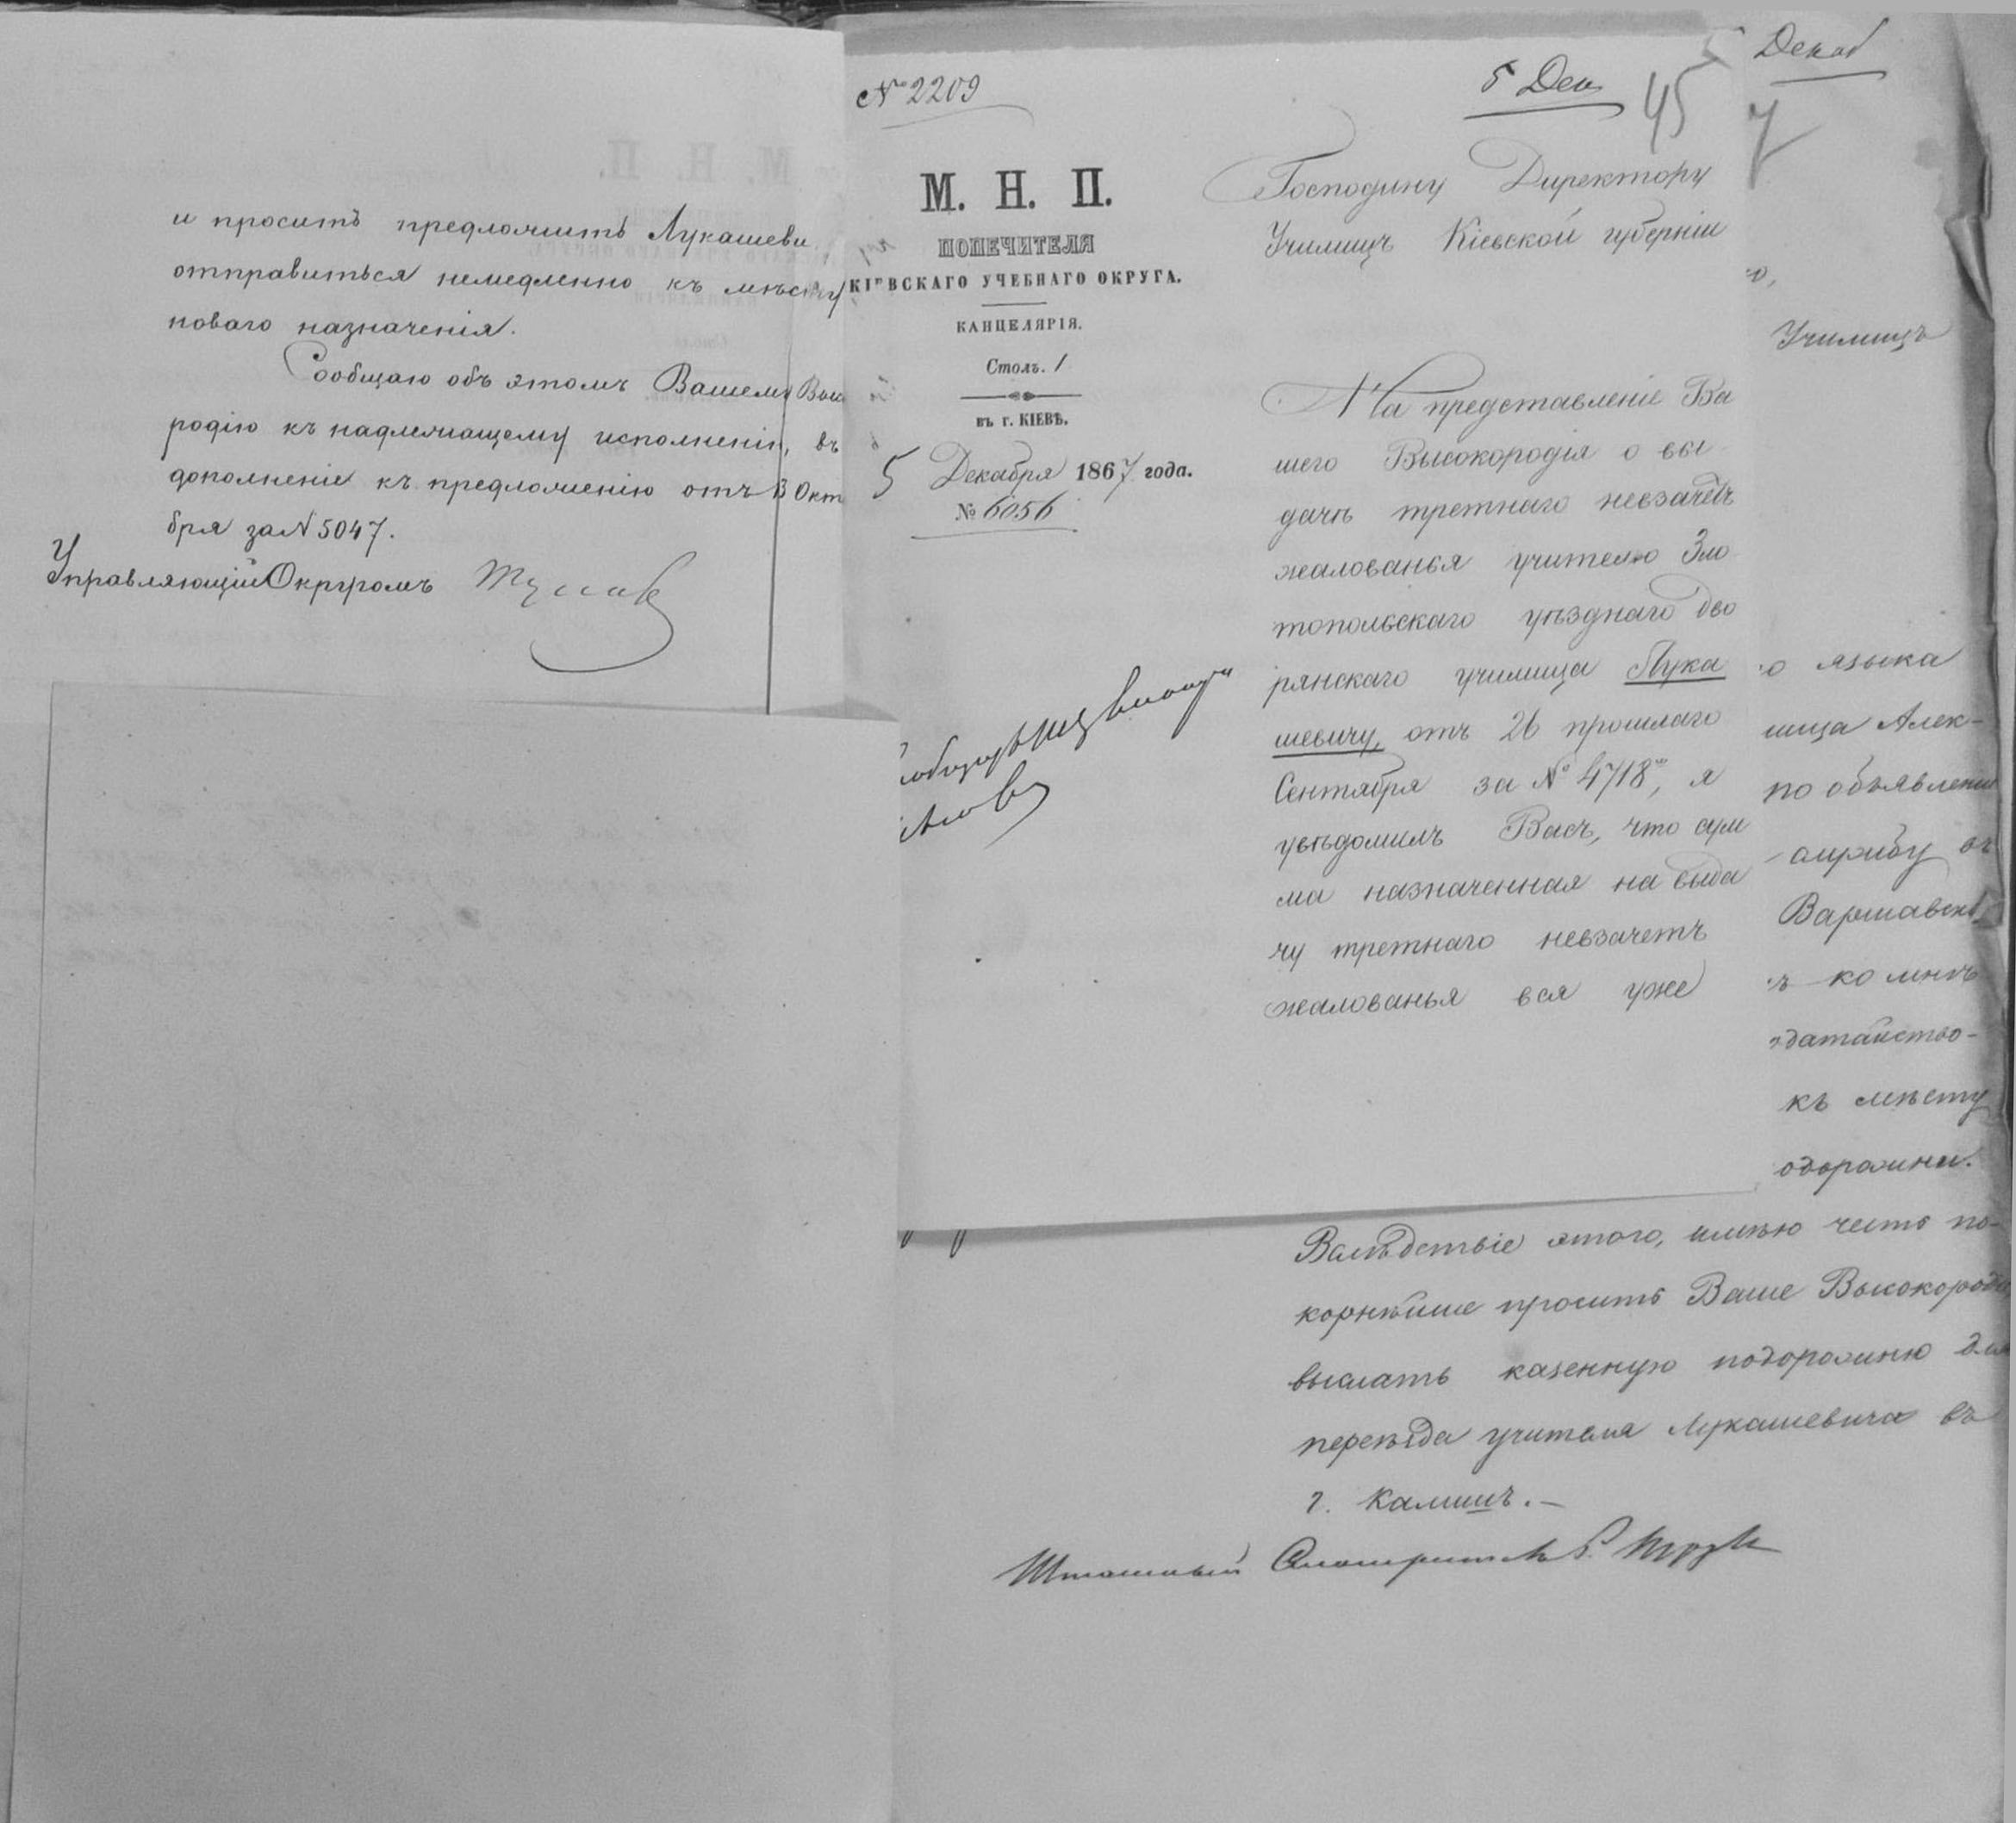 и проситъ предложить Лукашеви
отправиться немедленно къ мѣсту
новаго назначенія.
Сообщаю объ этомъ Вашему Высо
родію къ надлежащему исполненію, въ
дополненіе къ предложенію отъ 13 Октя
бря за N 5047.
Управляющій Округомъ
№ 2209
М. Н. П.
ПОПЕЧИТЕЛЯ
КІЕВСКАГО УЧЕБНАГО ОКРУГА.
КАНЦЕЛЯРІЯ.
Столъ. 1
въ г. КІЕВѢ.
5 Декабря 1867 года.
№ 6056
5 Дек
45
Господину Директору
Училищъ Кіевской губерніи
На представленіе Ва
шего Высокородія о вы
дачѣ третнаго невзачетъ
жалованья учителю Зло
топольскаго уѣзднаго дво
рянскаго училища Лука
шевичу, отъ 26 прошлаго
Сентября за № 4718, я
увѣдомилъ Васъ, что сум
ма назначенная на выда
чу третнаго невзачетъ
жалованья вся уже
Декаб
7
о,
Училищъ
о языка
лища Алек-
по объявлении
службу въ
Варшавск
ъ ко мнѣ
датайство-
къ мѣсту
одорожни.
Вслѣдствіе этого, имѣю честь по-
корнѣйше просить Ваше Высокородіе
выслать казенную подорожню для
переѣзда учителя Лукашевича въ
г. Калишъ.-
Штатный Смотритель